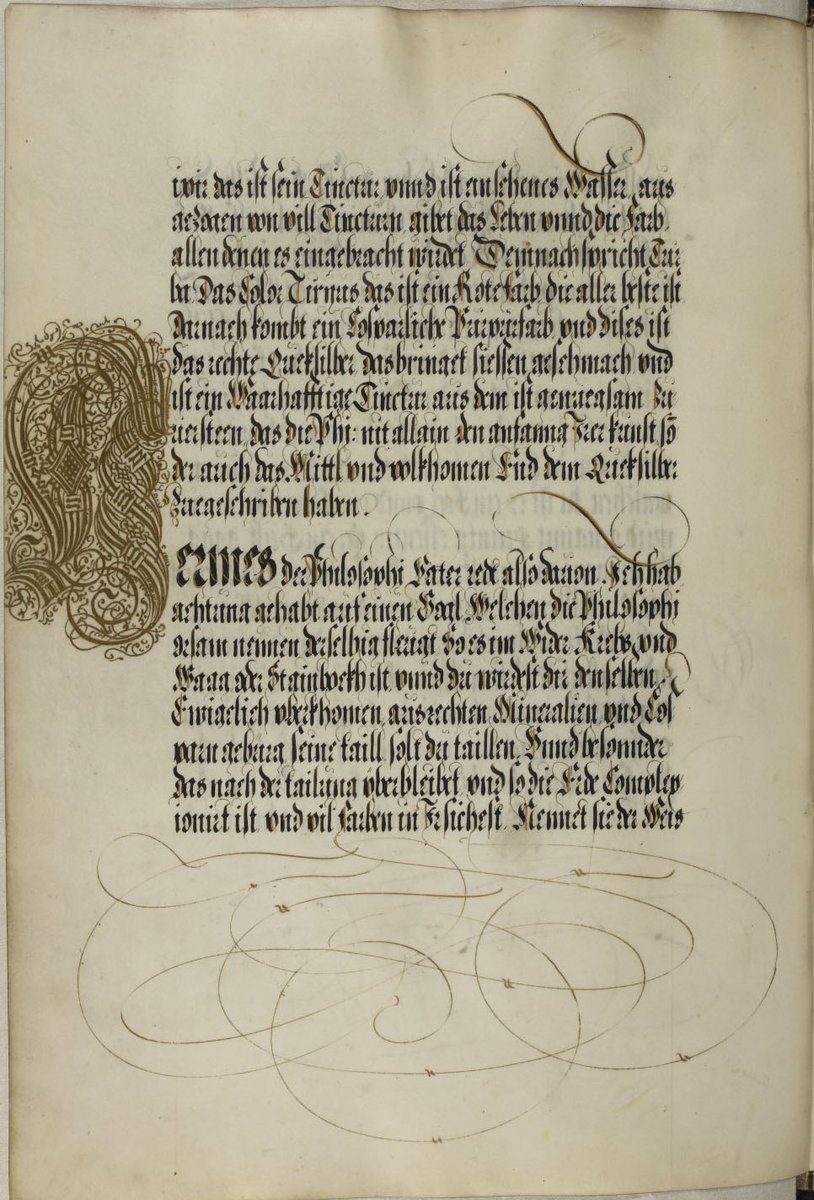 wir das ist sein Tinctur vnnd ist ein sehenes Wasser, aus
gezogen von vill Tincturn, gibet das Leben vnnd die Farb
allen denen es eingebracht wirdet Demnach spricht Tur
ba Das Color Tiryus das ist ein Rote farb die aller beste ist
darnach kombt ein Cospatliche Purpurfarb vnd dises ist
das rechte Quecksilber das bringet siessen geschmach vnd
ist ein Waarhafftige Tinctur aus dem ist genuegsam zu
uersteen, das die Phi: nit allain den anfanng Irer kunst sō
der auch das Mittl vnd volkhomen End dem Quecksilber
zuegeschriben haben.
HERMES der Philosophi Vater redt also dauon, Ich hab
achtung gehabt auf einen Vogl Welchen die Philosophi
orsam nennen derselbig fleugt So es im Wider Krebs, vnd
Waag oder Stainbockh ist, vnnd du wirdest dir denselben
Ewigelich vberkhomen, aus rechten Mineralien, vnd Cos
parn geburg seine taill, solt du taillen, Vnnd besonnder
das nach der tailung vberbleibet, vnd so die Erde Complex
ionirt ist, vnd vil Farben in Ir sichest, Nennet sie der Weis